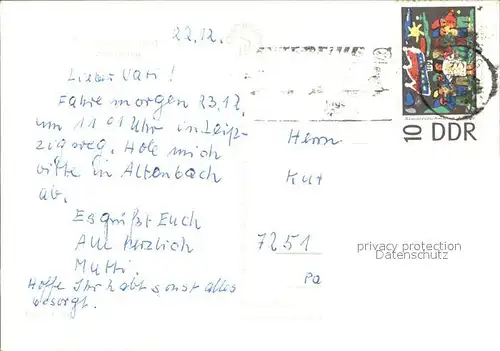 22.12.
Lieber Vati!
Fahre morgen 23.12.
um 11 01 Uhr in Leip-
zig weg. Hole mich
bitte in Altenbach
ab.
Es grüßt Euch
All herzlich
Mutti.
Hoffe Ihr habt sonst alles
besorgt.
10 DDR
Herrn
Kut
7251
pa
privacy protection
Datenschutz